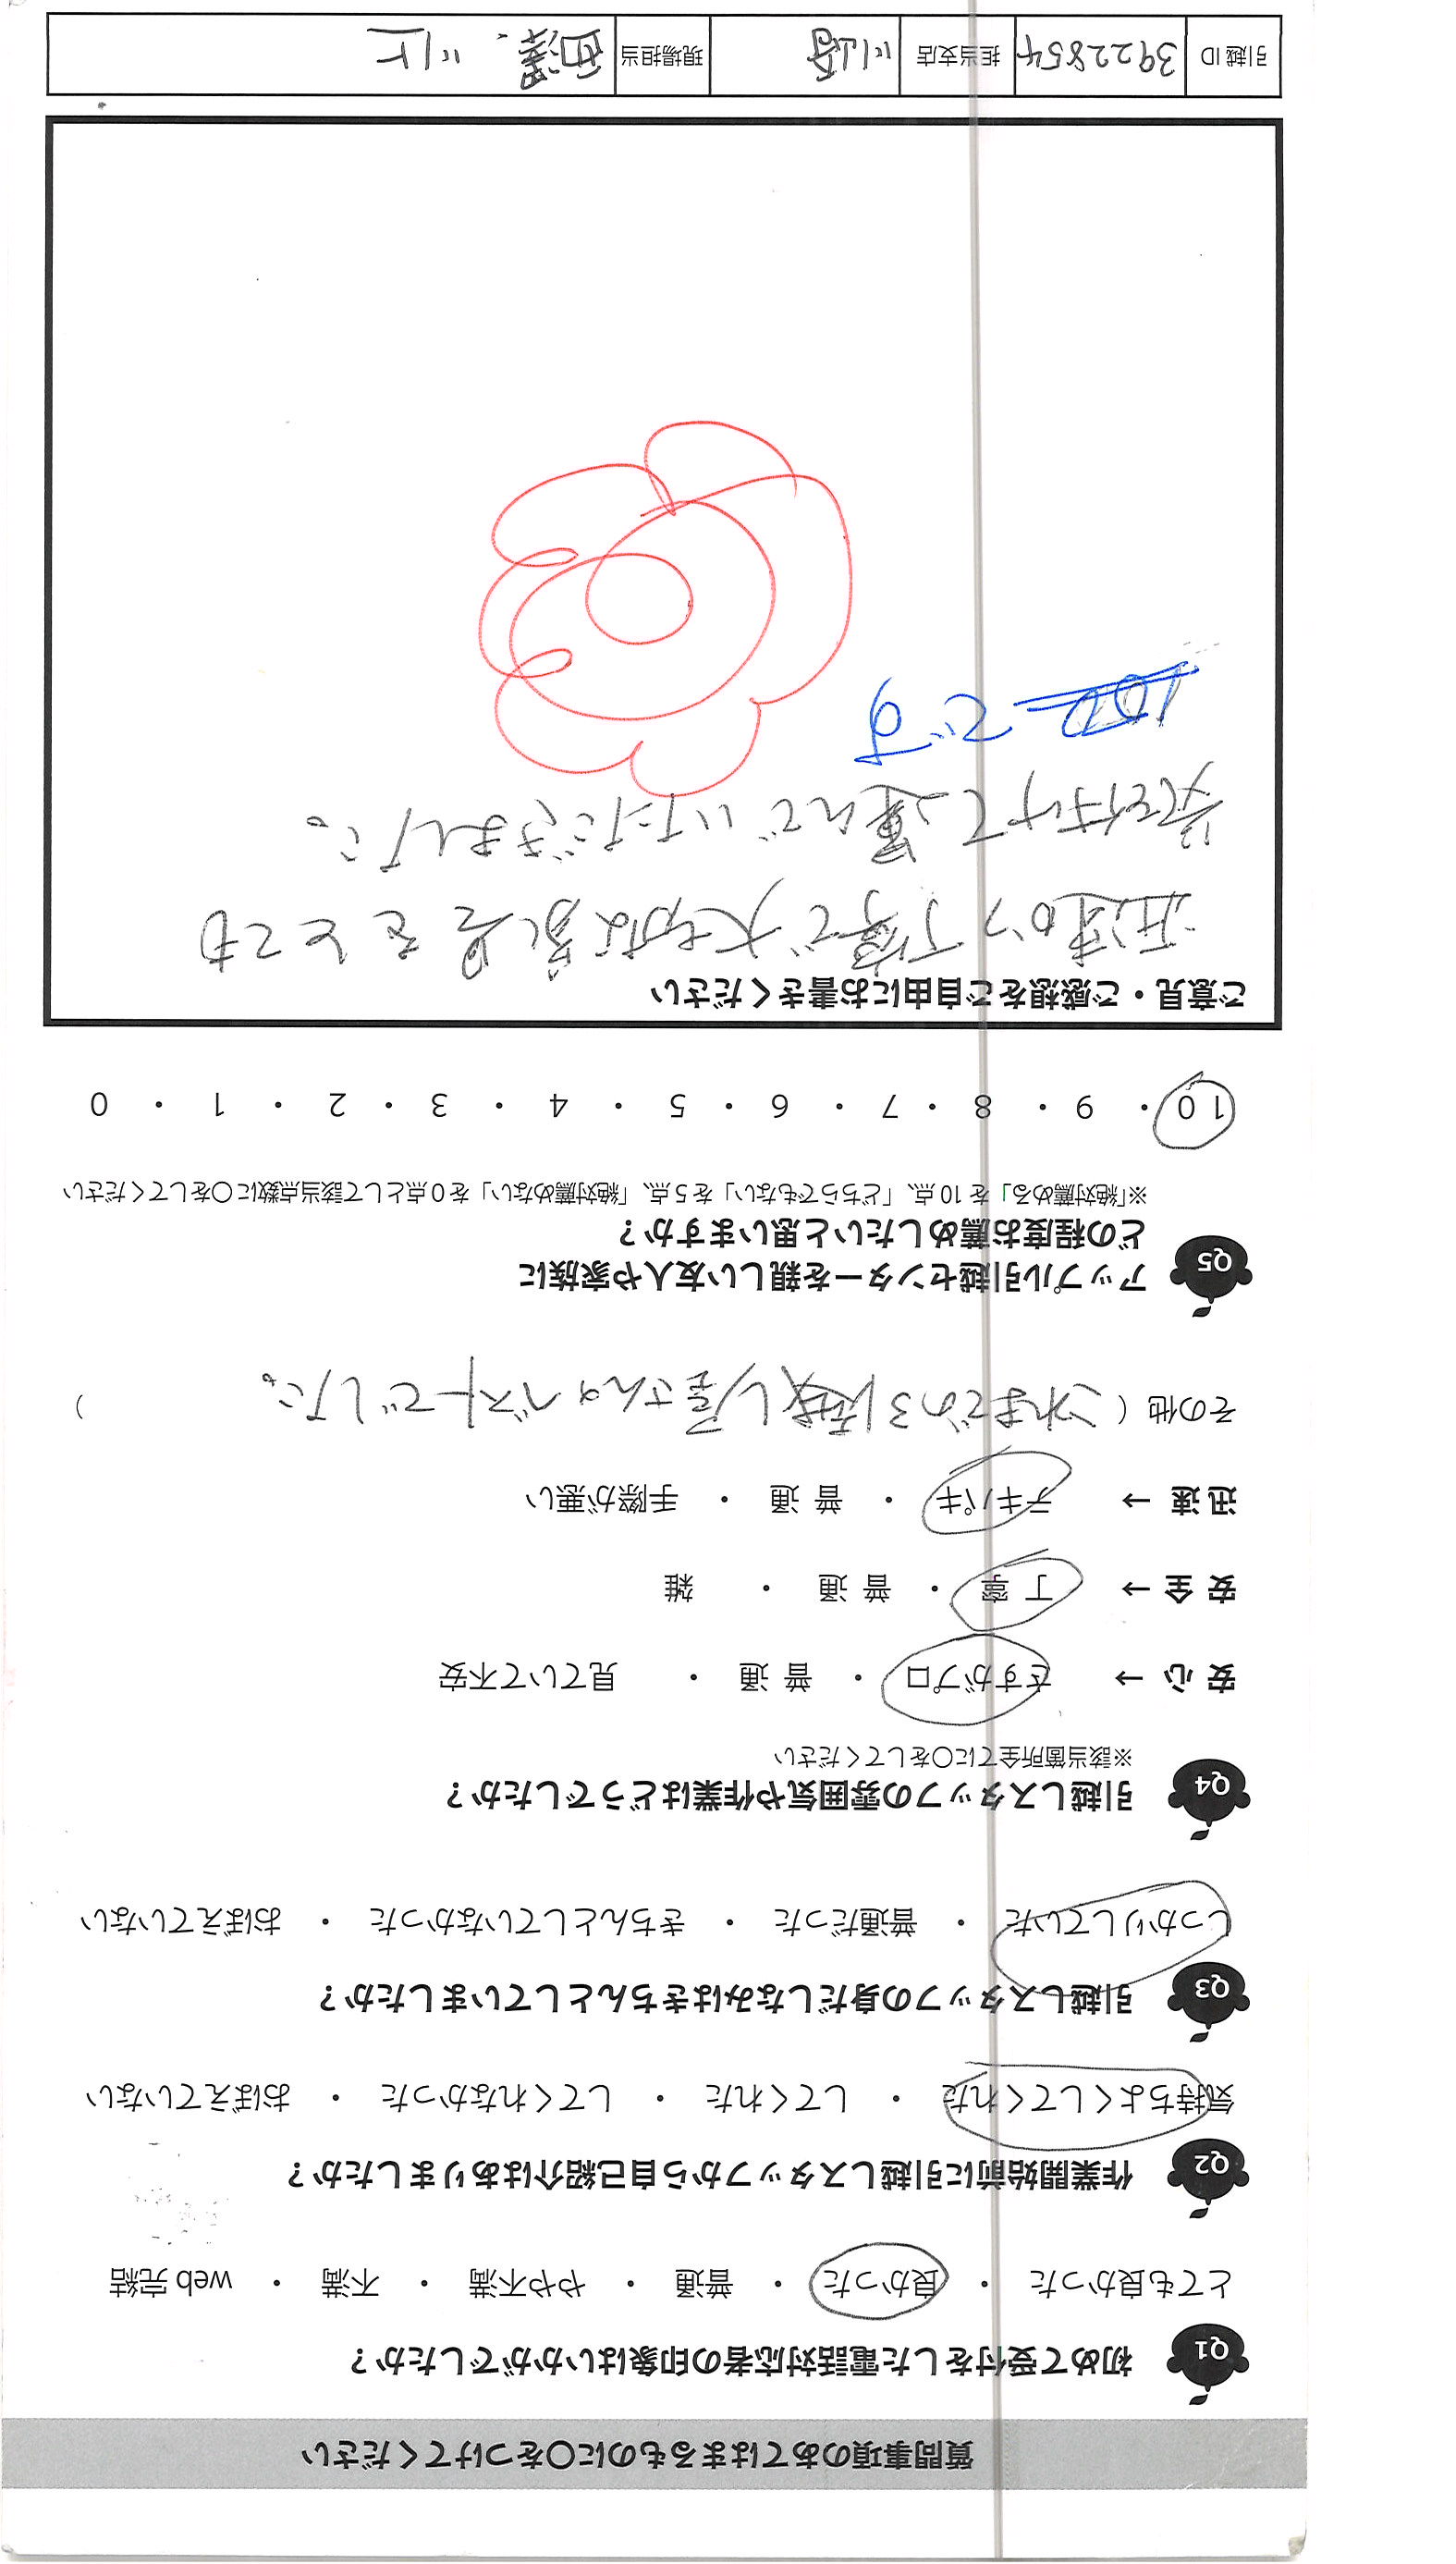 質問事項のあてはまるものに○をつけてください
Q1 初めて受付をした電話対応者の印象はいかがでしたか？
とても良かった ・ 良かった ・ 普通 ・ やや不満 ・ 不満 ・ web 完結
Q2 作業開始前に引越しスタッフから自己紹介はありましたか？
気持ちよくしてくれた ・ してくれた ・ してくれなかった ・ おぼえていない
Q3 引越しスタッフの身だしなみはきちんとしていましたか？
しっかりしていた ・ 普通だった ・ きちんとしていなかった ・ おぼえていない
Q4 引越しスタッフの雰囲気や作業はどうでしたか？
※該当箇所全てに○をしてください
安心 → さすがプロ ・ 普通 ・ 見ていて不安
安全 → 丁寧 ・ 普通 ・ 雑
迅速 → テキパキ ・ 普通 ・ 手際が悪い
その他（これまでの引越し屋さんのベストでした。）
Q5 アップル引越センターを親しい友人や家族に
どの程度お薦めしたいと思いますか？
※「絶対薦める」を10点、「どちらでもない」を5点、「絶対薦めない」を0点として該当点数に○をしてください
10 ・ 9 ・ 8 ・ 7 ・ 6 ・ 5 ・ 4 ・ 3 ・ 2 ・ 1 ・ 0
ご意見・ご感想をご自由にお書きください
迅速かつ丁寧で大切な家具をとても
気を付けて運んでいただきました。
100 です
引越ID 3922854 担当支店 川崎 現場担当 西澤. 川上